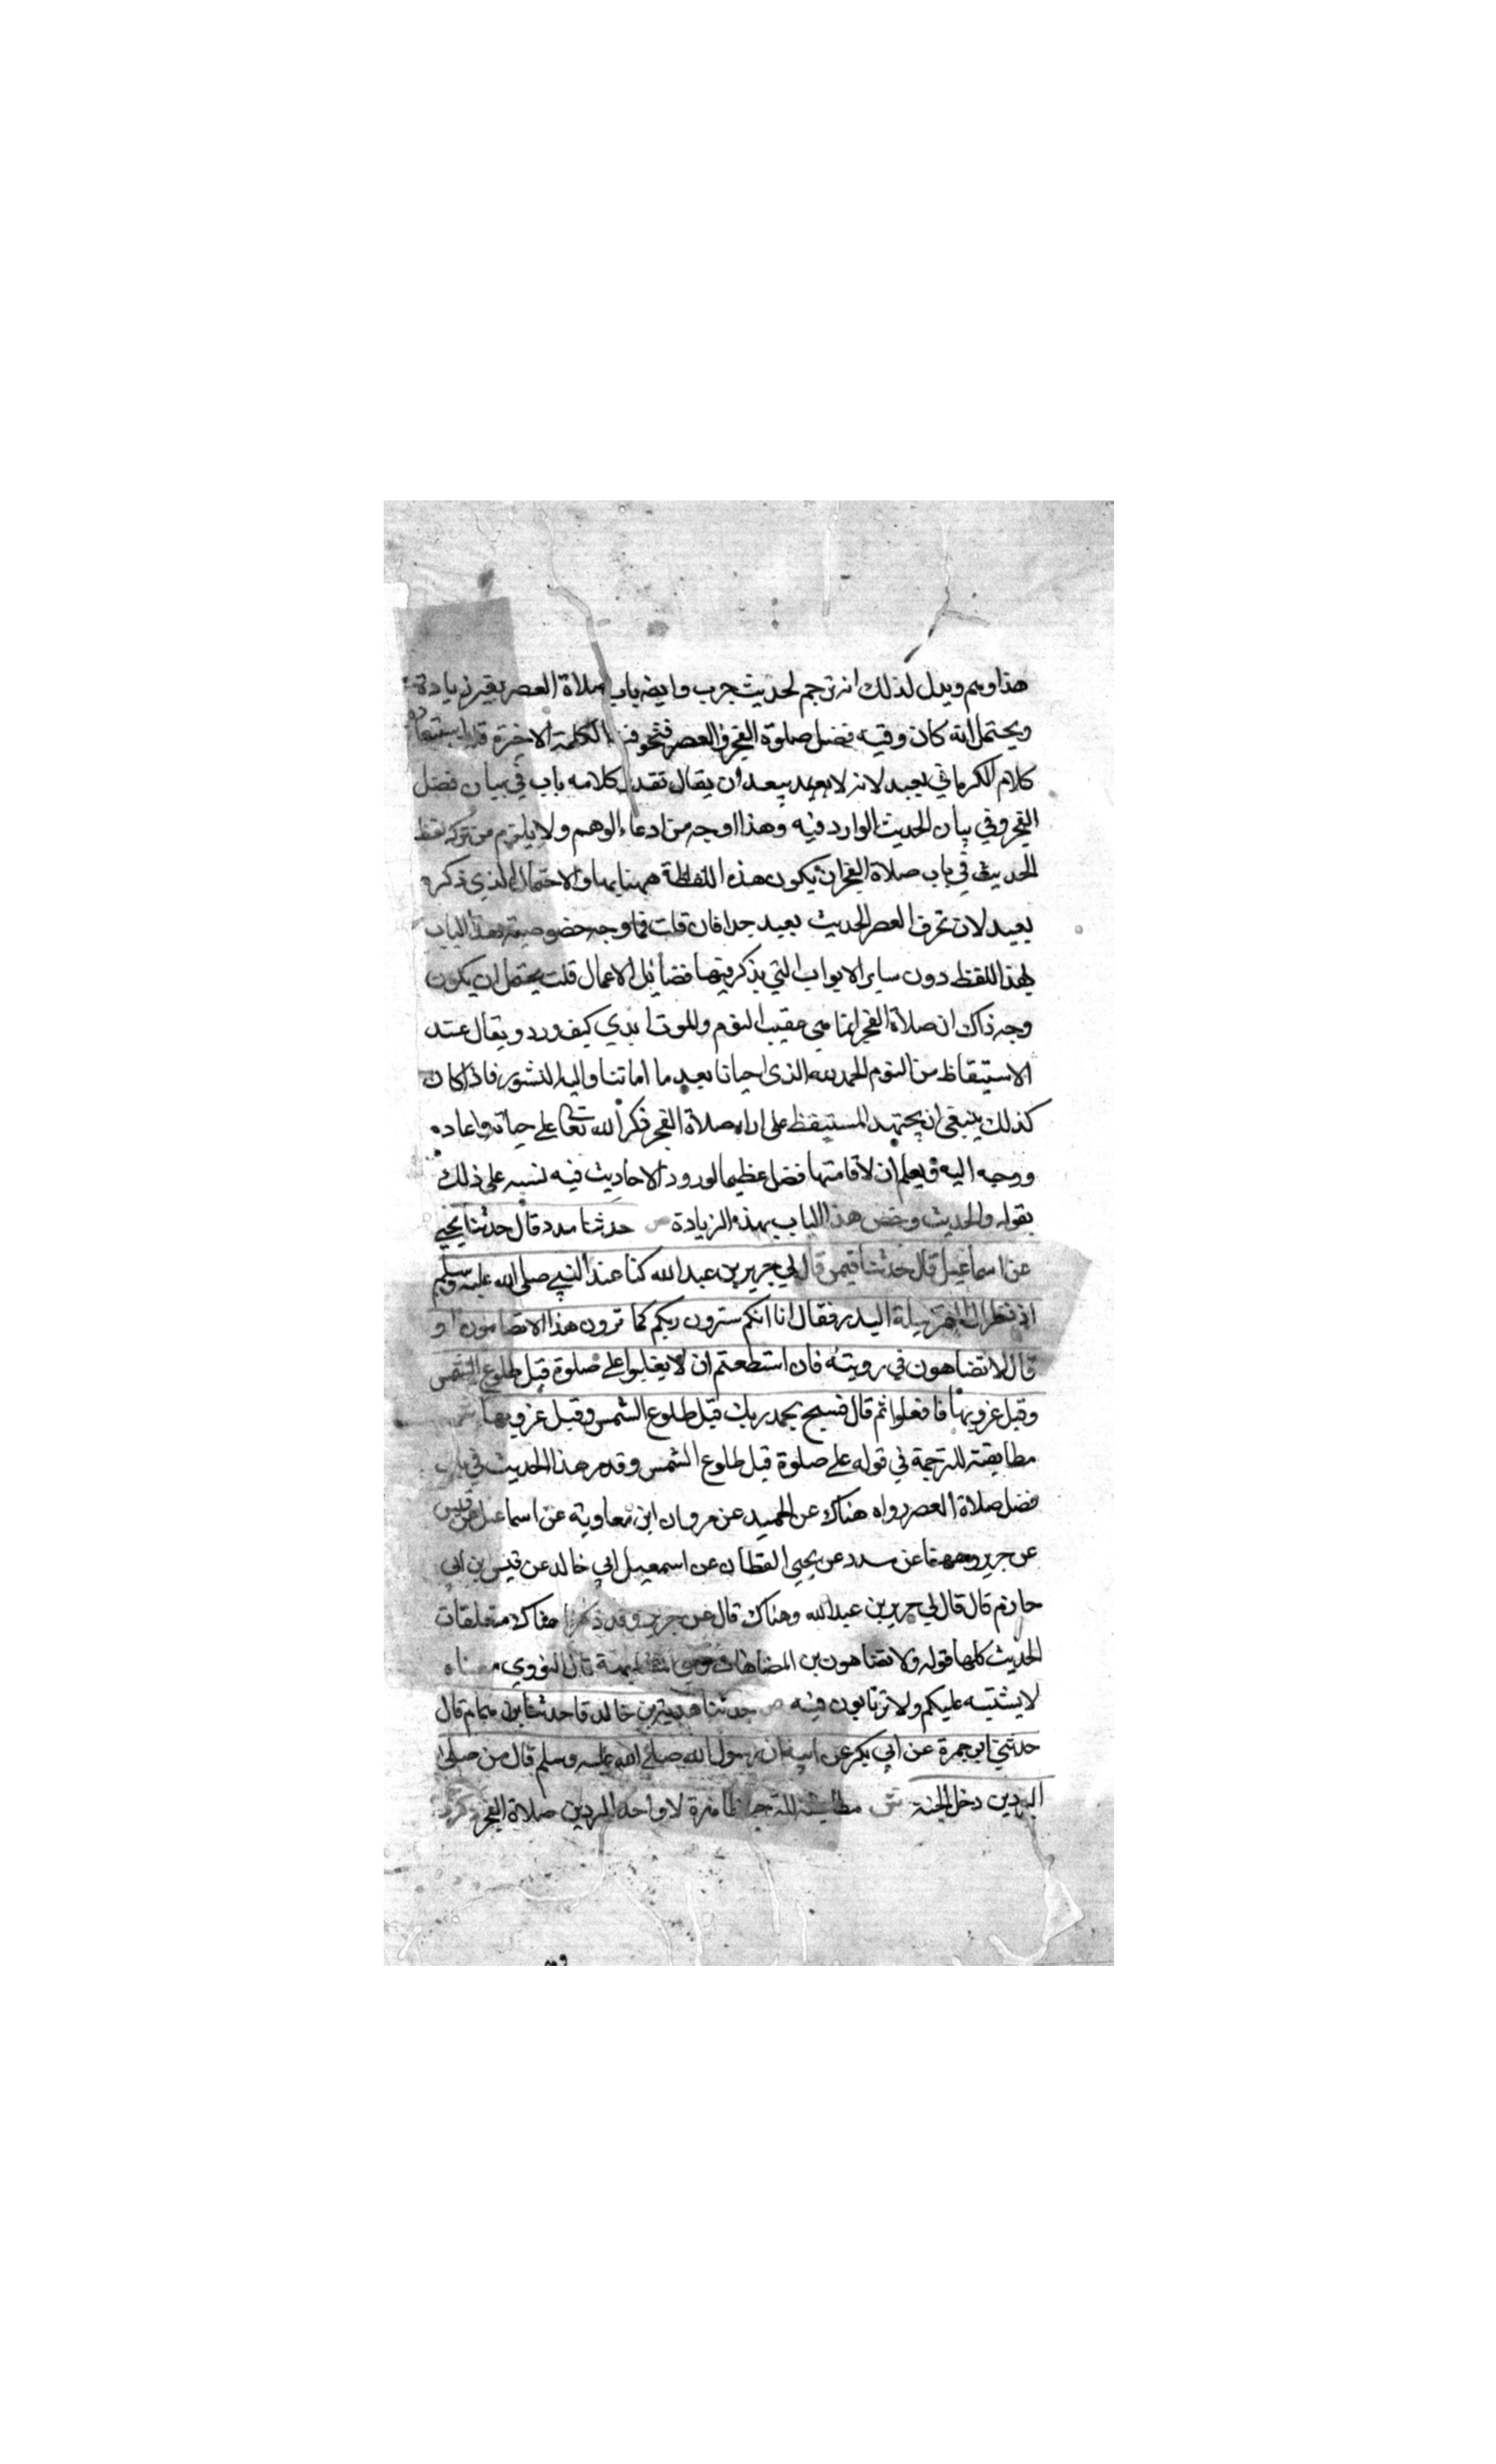 هذا وهم ويدل لذلك انه ترجم لحديث جرير وايضا باب صلاة العصر بغير زيادة
ويحتمل انه كان وقيه فضل صلوة الفجر والعصر فتحرفت الكلمة الاخيرة قلت استبعاد
كلام الكرماني بعيد لانه لا يبعد ان يقال تقدير كلامه باب في بيان فضل
الفجر وفي بيان الحديث الوارد فيه وهذا اوجه من ادعاء الوهم ولا يلزم من تركه لفظ
الحديث في باب صلاة الفجر ان يكون هذه اللفظة ههنا وهما والاحتمال الذي ذكره
بعيد لان تحرف العصر الحديث بعيد جدا فان قلت فما وجه خصوصية هذا الباب
بهذا اللفظ دون ساير الابواب التي يذكر فيها فضائل الاعمال قلت يحتمل ان يكون
وجه ذاك ان صلاة الفجر انما هي عقيب النوم والموت كيف ورد ويقال عند
الاستيقاظ من النوم الحمد لله الذي احيانا بعد ما اماتنا واليه النشور فاذا كان
كذلك ينبغي ان يجتهد المستيقظ على اداء صلاة الفجر ذكرا لله تعالى على حياته واعاده
ووجه اليه ويعلم ان لاقامتها فضل عظيما لورود الاحاديث فيه نسبه على ذلك
بقوله والحديث وخص هذا الباب بهذه الزيادة ص حدثنا مسدد قال حدثنا يحيى
عن اسماعيل قال حدثنا قيس قال لي جرير بن عبد الله كنا عند النبي صلى الله عليه وسلم
اذ نظر الى القمر ليلة البدر فقال انا انكم سترون ربكم كما ترون هذا لا تضامون او
قال لا تضاهون في رويته فان استطعتم ان لا يغلبوا على صلوة قبل طلوع الشمس
وقبل غروبها فافعلوا ثم قال فسبح بحمد ربك قبل طلوع الشمس وقبل غروبها ش
مطابقته للترجمة في قوله على صلوة قبل طلوع الشمس وقد مر هذا الحديث في باب
فضل صلاة العصر رواه هناك عن الحميد عن مروان ابن معاوية عن اسماعيل عن قيس
عن جرير وههنا عن مسدد عن يحيى القطان عن اسمعيل ابي خالد عن قيس بن ابي
حازم قال قال لي جرير بن عبد الله وهناك قال عن جرير وقد ذكرنا هناك متعلقات
الحديث كلها قوله ولا تضاهون من المضاهاة وهي المشابهة قال النووي معناه
لا يشتبه عليكم ولا ترتابون فيه ص حدثنا هدبة بن خالد قا حدثنا همام قال
حدثني ابو جمرة عن ابي بكر عن ابيه ان رسول الله صلى الله عليه وسلم قال من صلى
البردين دخل الجنة ش مطابقته للترجمة ظاهرة لان احد البردين صلاة الفجر